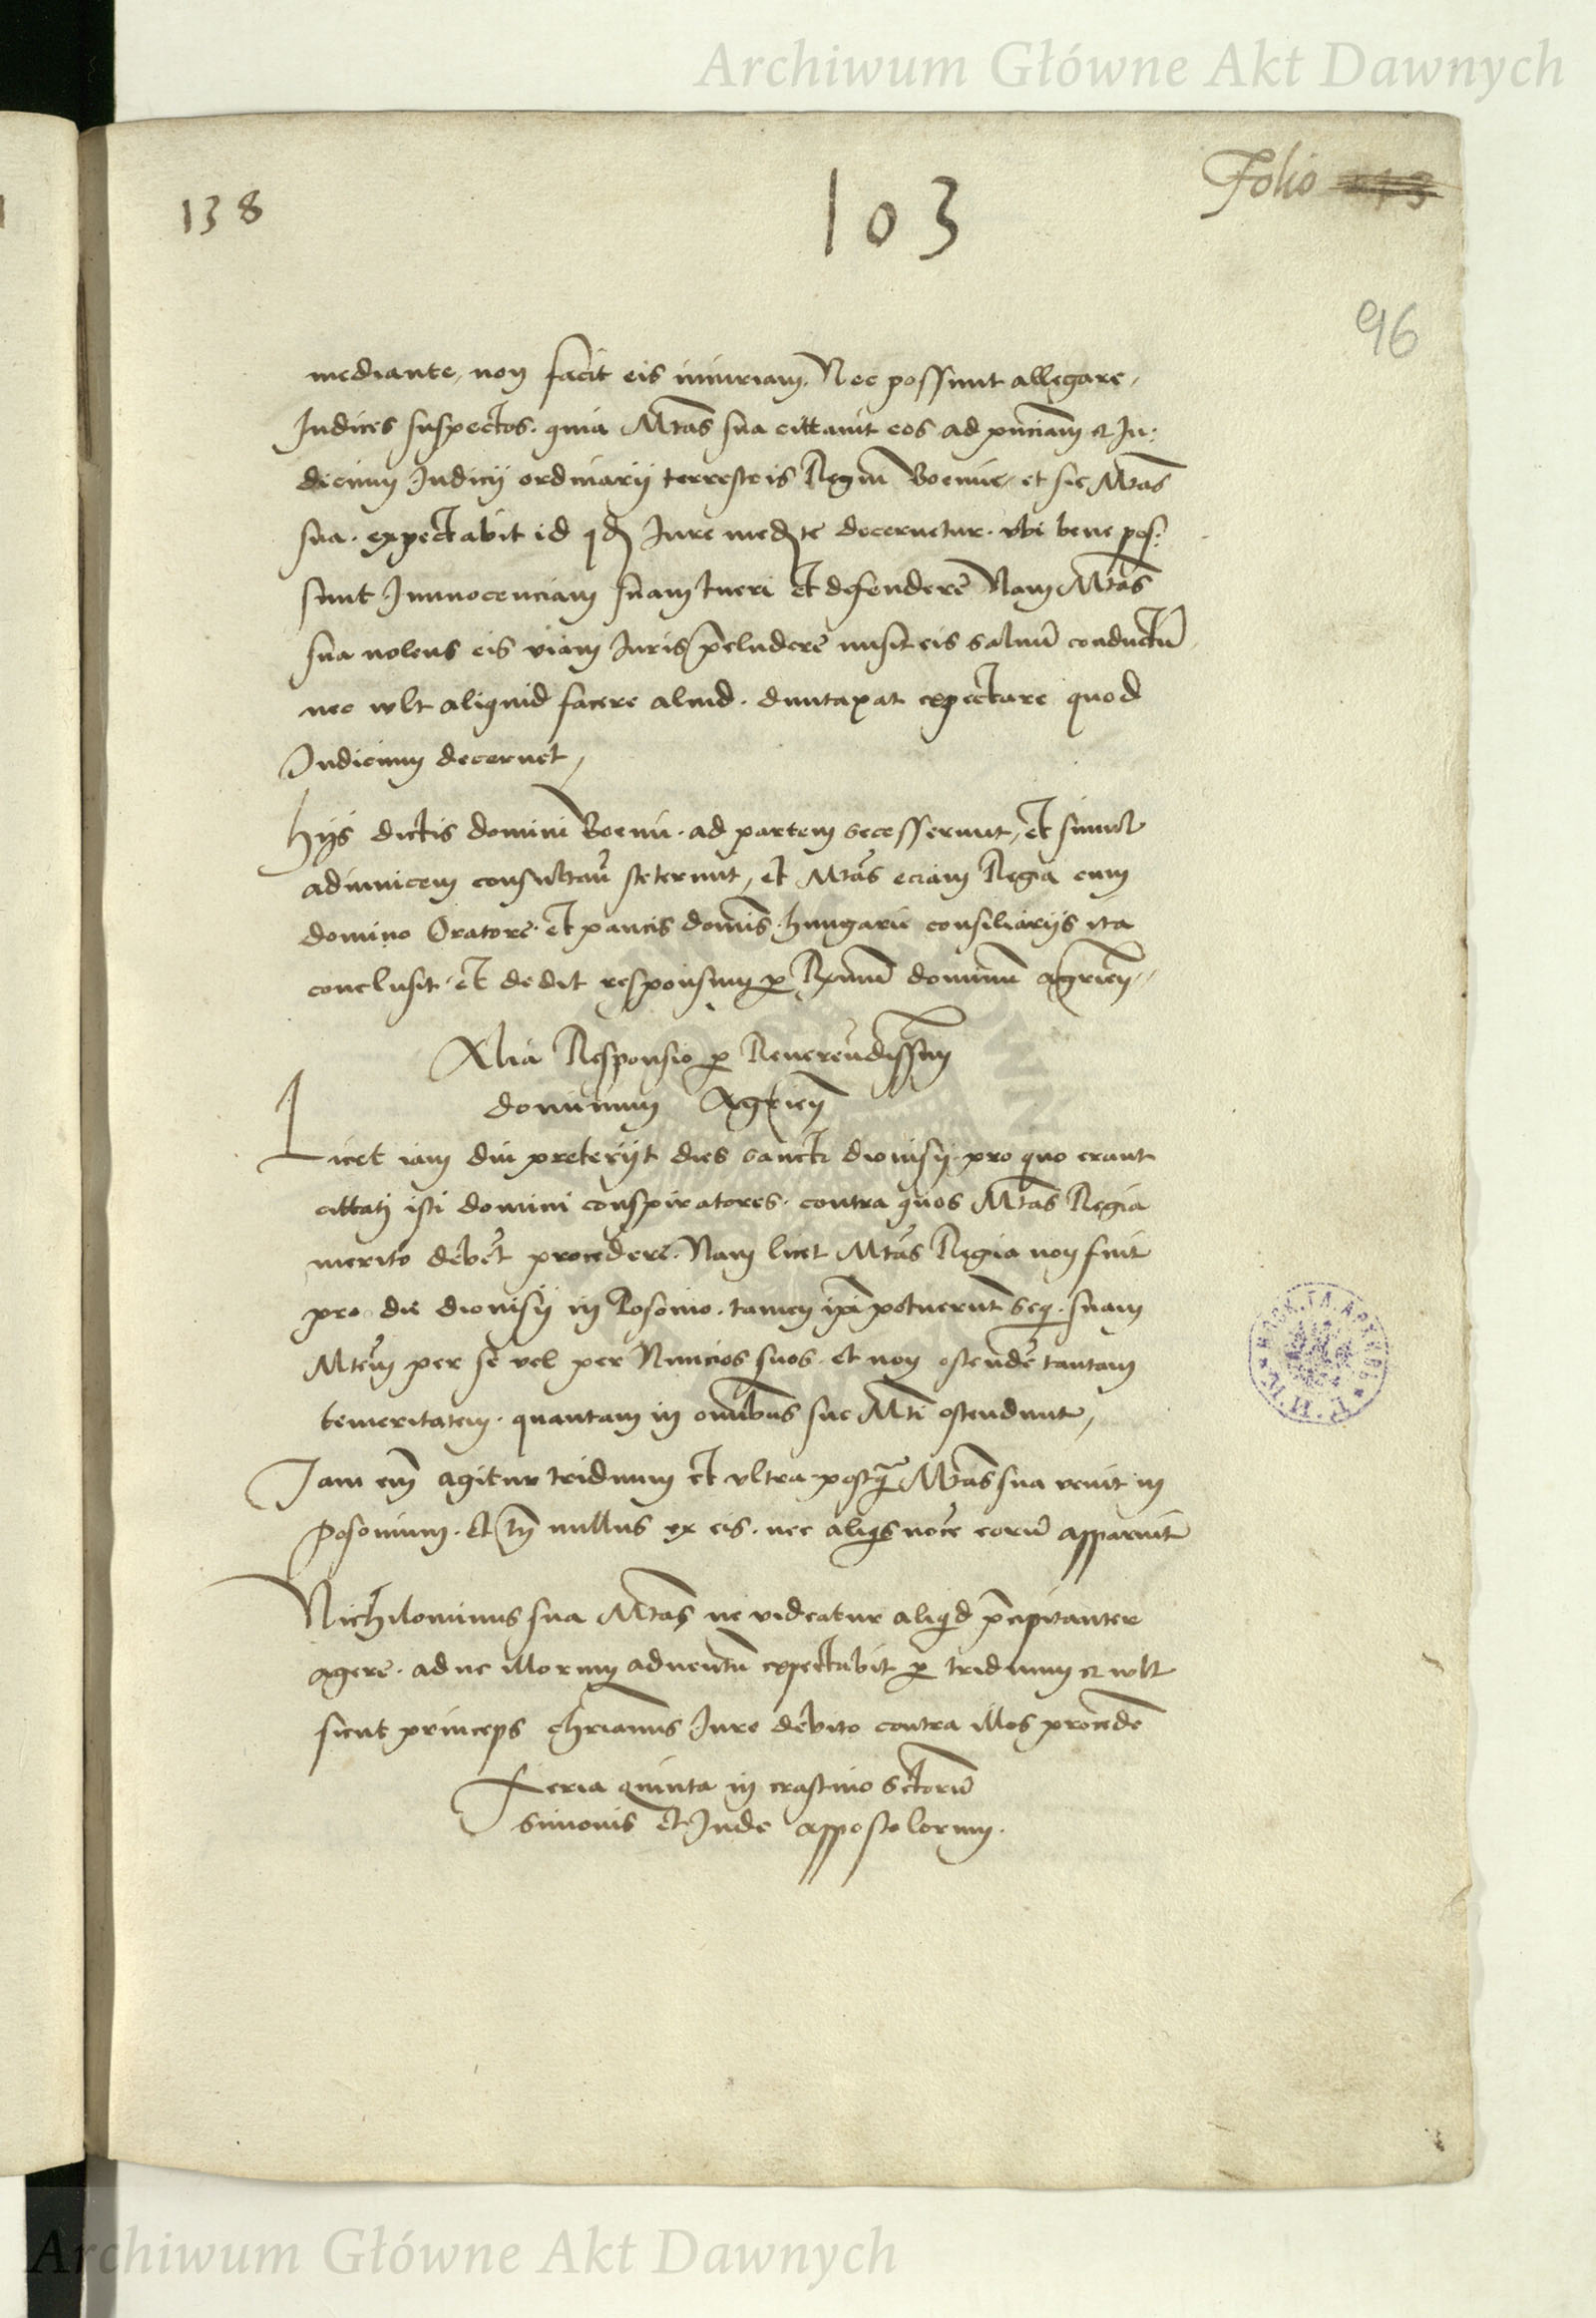 Archiwum Główne Akt Dawnych
138
103
Folio
96
mediante, non facit eis iniuriam. Nec possunt allegare,
Judices suspectos. quia Mtas sua cittauit eos ad pñciam et Ju:
dicium Judicij ordinarij terrestris Regni Boemie, et sic Mtas
sua. expectabit id qd Jure medte decernetur. vbi bene pos:
sunt Innocenciam suam tueri et defendere Nam Mtas
sua nolens eis viam Juris p̄cludere misit eis saluū conductū
nec wlt aliquid facere aliud. duntaxat expectare quod
Judicium decernet,
Hijs dictis domini Boemi. ad partem secesserunt, et simul
adinuicem consultań steterunt, et Mtas eciam Regia cum
domino Oratore. et paucis domīs. hungarie consiliarijs ita
conclusit. et dedit responsum p Rxmū dominū Agrieñ,
Alia Responsio p Reuerendissim
dominum Agrieñ
Licet iam diu preterijt dies sancti dionisij. pro quo erant
cittati isti domini conspiratores. contra quos Mtas Regia
merito debet procedere. Nam licet Mtas Regia non fuit
pro die dionisij in Posonio. tamen ipi potuerunt seq. suam
Mtem per se vel per Nuncios suos. et non ostendē tantam
temeritatem. quantam in omībus sue Mti ostendunt,
Jam em̄ agitur triduum et vltra. postq̄ Mtas sua venit in
Posonium. et tn̄ nullus ex eis. nec aliqs noīe eorū apparuit
Nichilominus sua Mtas ne videatur aliqd p̄cipitanter
agere. adhc illorum aduentū expectabit p triduum et wlt
sicut princeps chrianus Jure debito contra illos procedē
Feria quinta in crastino Sctorū
Simonis et Jude appostolorum.
Archiwum Główne Akt Dawnych